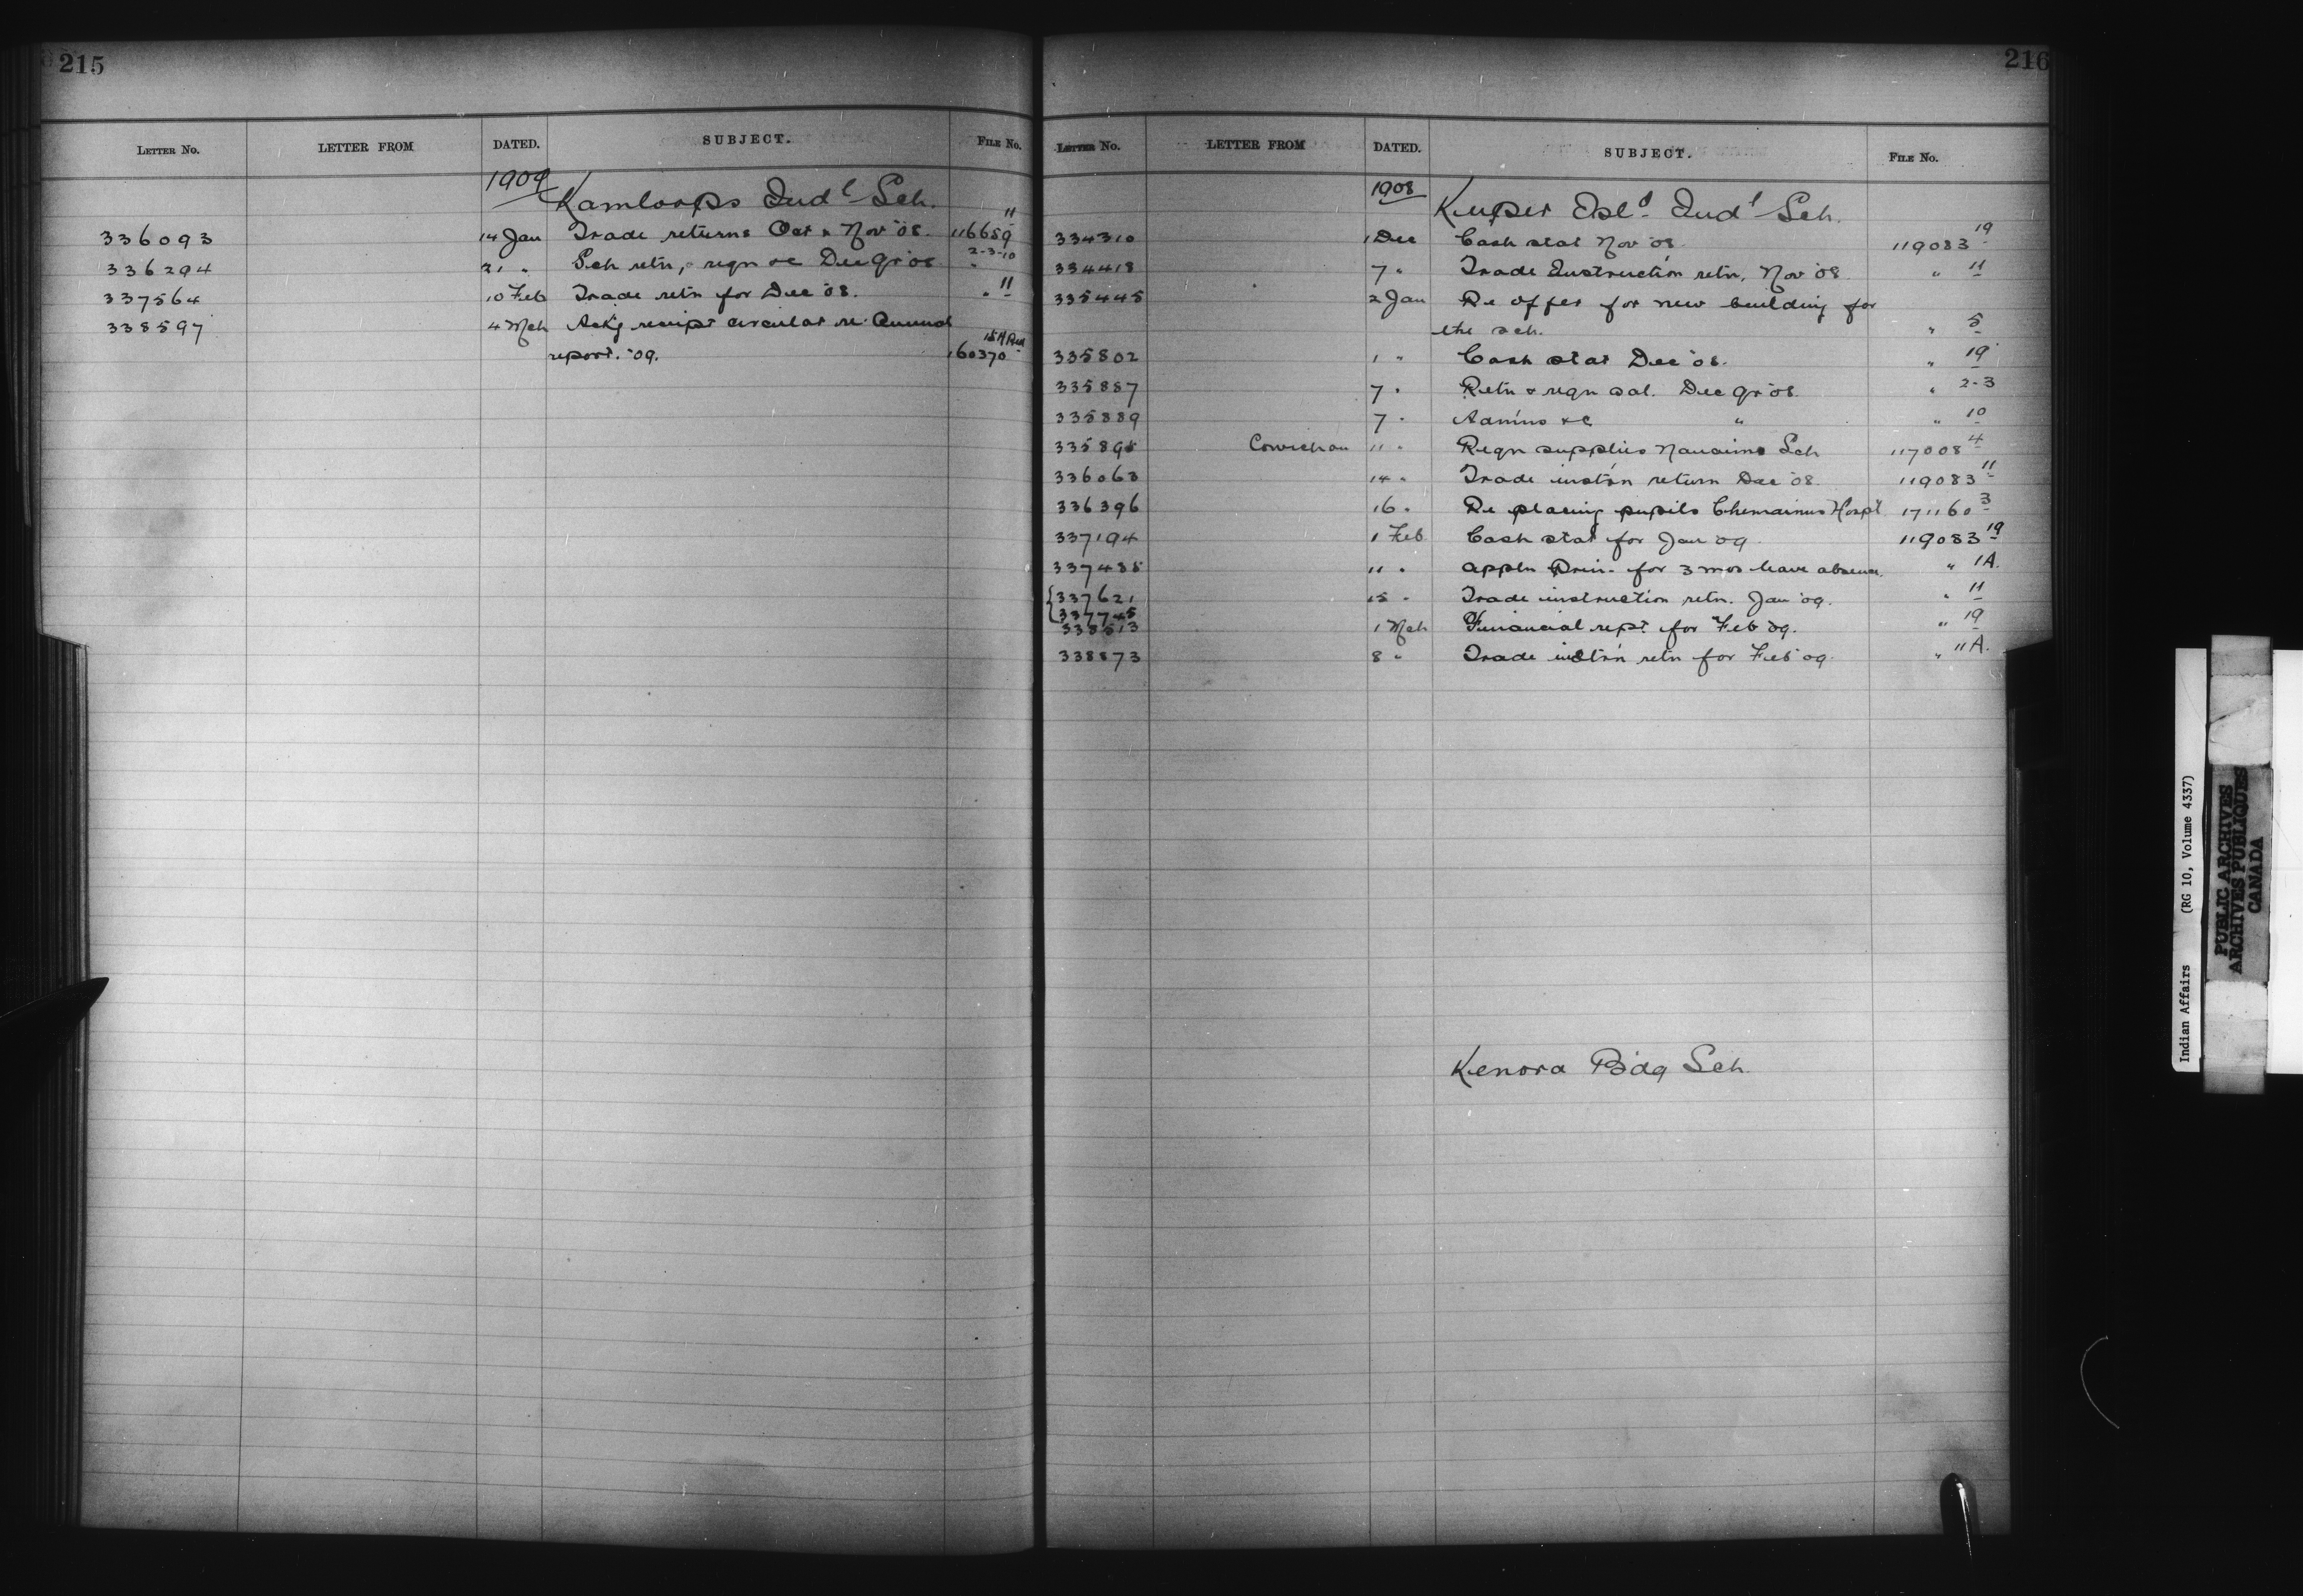 215
LETTER NO. LETTER FROM DATED. SUBJECT. FILE NO.
1909 Kamloops Indl Sch.
336093 14 Jan Trade returns Oct & Nov '08. 116659 11
336294 21 " Sch retn, regn &c Dec qr '08 " 2-3-10
337564 10 Feb Trade retn for Dec '08. " 11
338597 4 Mch Ackg receipt circular re Annual
report. '09. 160370
216
LETTER NO. LETTER FROM DATED. SUBJECT. FILE NO.
1908 Kuper Isld Indl Sch.
334310 1 Dec Cash stat Nov '08. 119083 19
334418 7 " Trade Instruction retn, Nov '08 " 11
335445 2 Jan Re offer for new building for
the sch. " 5
335802 1 " Cash stat Dec '08. " 19
335887 7 " Retn & regn sal. Dec qr '08. " 2-3
335889 7 " Admns &c " " 10
335898 Cowichan 11 " Regn supplies Nanaimo Sch 117008 4
336063 14 " Trade instrn return Dec '08. 119083 11
336396 16 " Re placing pupils Chemainus Hospl 171160 3
337194 1 Feb Cash stat for Jan '09. 119083 19
337488 11 " Appln Prin. for 3 mos leave absence. " 1A.
{337621 15 " Trade instruction retn. Jan '09. " 11
{337745
338513 1 Mch Financial rept for Feb '09. " 19
338873 8 " Trade instrn retn for Feb '09. " 11A.
Kenora Bdg Sch.
Indian Affairs (RG 10, Volume 4337)
PUBLIC ARCHIVES
ARCHIVES PUBLIQUES
CANADA